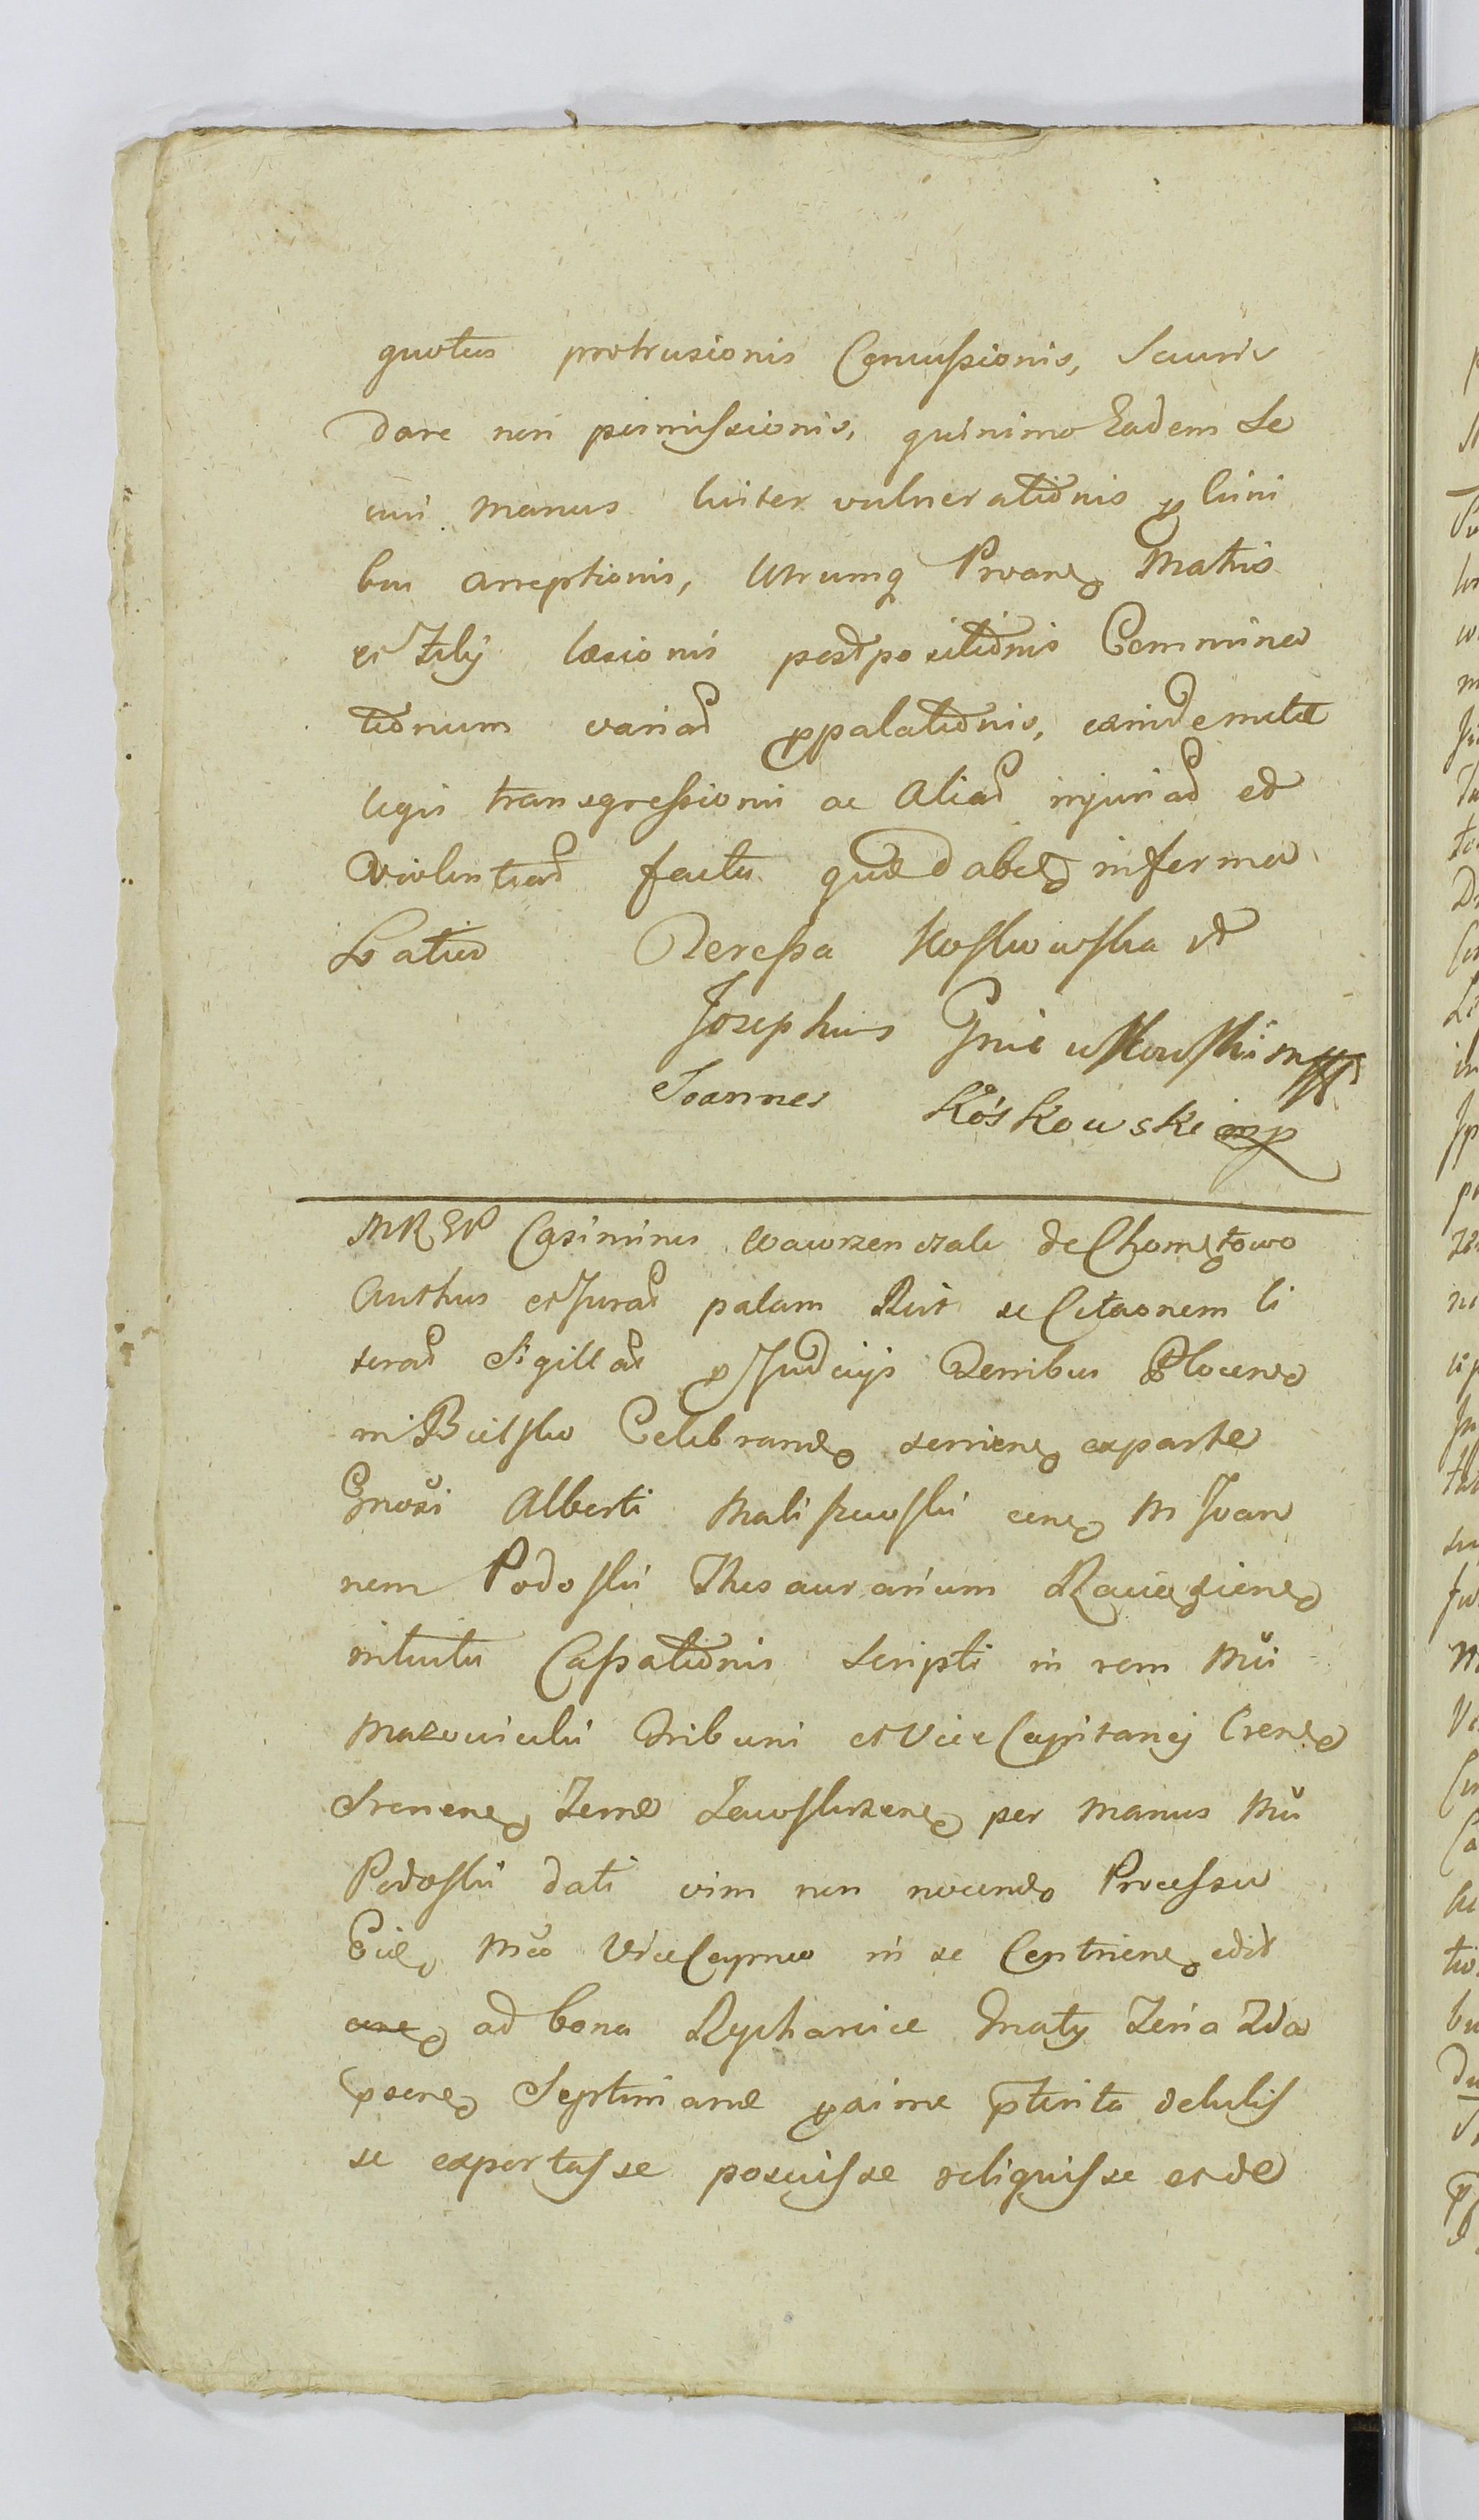 quotus protrusionis Concussionis, Securis
dare non permissionis, quinimo Eadem Se
curi manus leviter vulnerationis p Crini
bus arreptionis, Utrumq Proane Matris
et Filij læsionis postpositionis Commina
tionum variar propalationis, exinde multæ
legis transgressionis ac aliar injuriar et
violentiar factu
Latius Teressa Koskowska et
Josephus Gniewkowski mpp
Joannes Koskowski mp
MREP Casimirus Wawrzenczak de Chometowo
Authus et Jurat palam Ruit se Citaonem li
terar Sigillat p Judicijs Terribus Plocens
in Bielsko Celebrand serviens ex parte
Gnosi Alberti Maliszewski cone M Joan
nem Podoski Thesaurarium Racią
intuitu Cassationis Scripti in rem Mci
Mazowiecki Tribuni et Vice Capitanej
Srenens Terræ Zawskrzens per manus Mci
Podoski dati vim non nocend Processu
Mco ViceCapneo in se edit
ad bona Rycharcice
Septimanæ pxime pterita detulis
se exportasse posuisse reliquisse et de